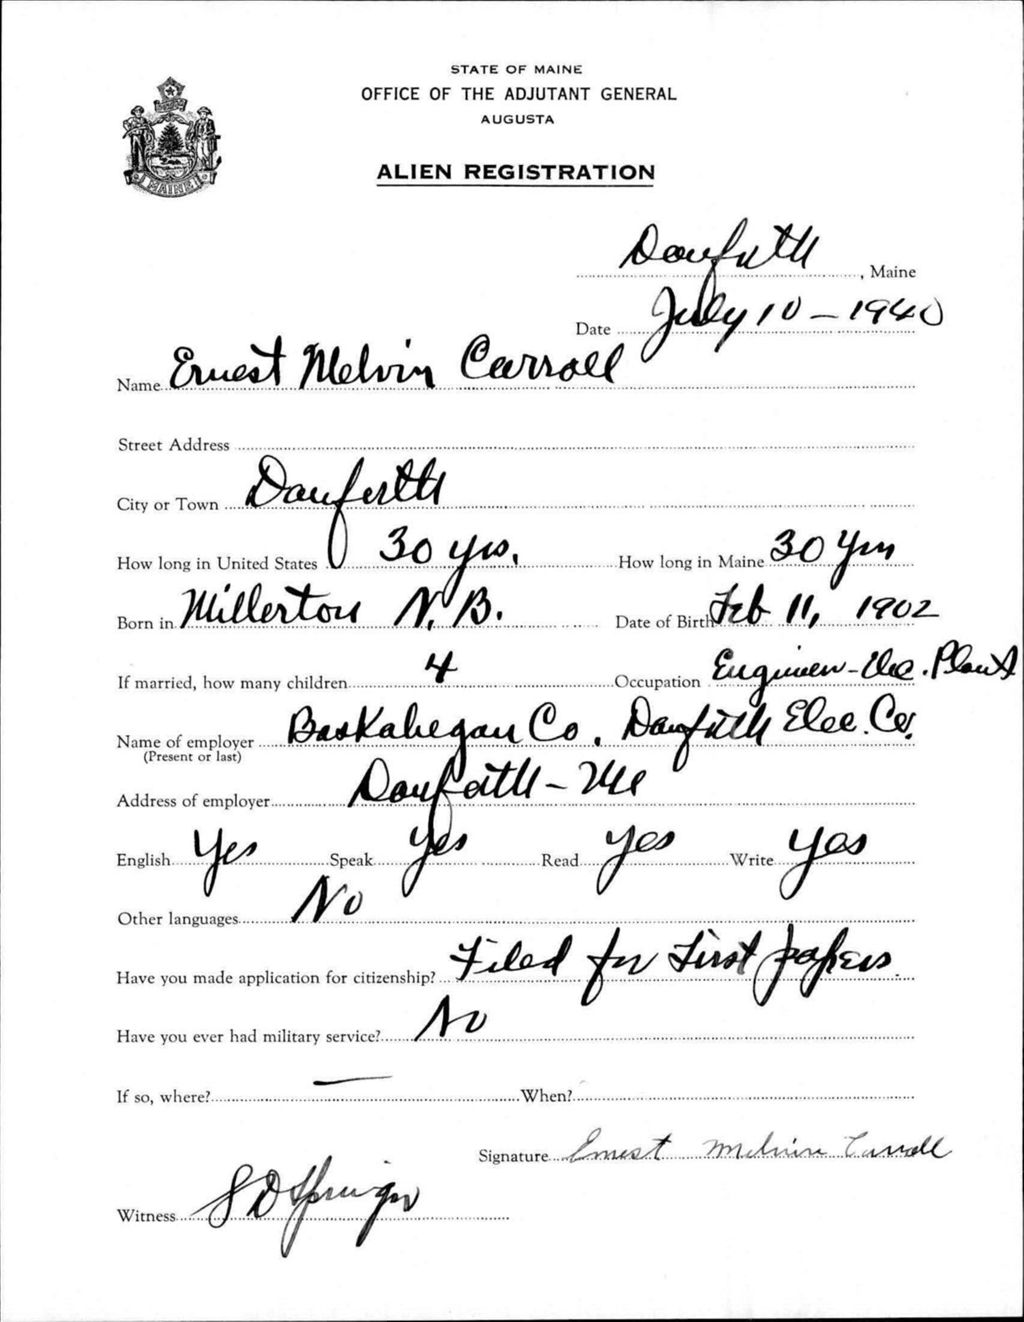 STATE OF MAINE
OFFICE OF THE ADJUTANT GENERAL
AUGUSTA
ALIEN REGISTRATION
MAINE
Danforth, Maine
Date July 10 - 1940
Name Ernest Melvin Carroll
Street Address
City or Town Danforth
How long in United States 30 yrs. How long in Maine 30 yrs
Born in Millerton N.B. Date of Birth Feb 11, 1902
If married, how many children 4 Occupation Engineer - Elec. Plant
Name of employer Baskahegan Co. Danforth Elec. Co.
(Present or last)
Address of employer Danforth - Me
English Yes Speak Yes Read Yes Write Yes
Other languages No
Have you made application for citizenship? Filed for First papers.
Have you ever had military service? No
If so, where? — When?
Signature Ernest Melvin Carroll
Witness S D Springer